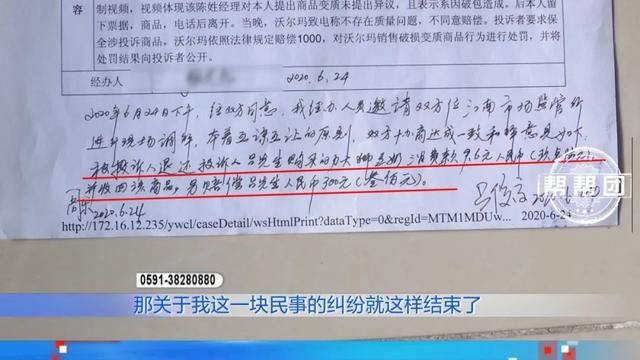 制视频，视频体现该陈姓经理对本人提出商品变质未提出异议，且表示系因破包造成。后本人留
下票据，商品，电话后离开。当晚，沃尔玛致电称不存在质量问题，不同意赔偿。投诉者要求保
全涉投诉商品，沃尔玛依照法律规定赔偿1000，对沃尔玛销售破损变质商品行为进行处罚，并将
处罚结果向投诉者公开。
容
经办人
2020.6.24
2020年6月24日下午，经双方同意，我经办人员邀请双方位江南市场监管所
进行现场调解，本着互谅互让的原则，双方协商达成一致和解意见如下
被投诉人退还投诉人吕先生购买的 消费款9.6元人民币
并收回该商品，另赔偿吕先生人民币300元（叁佰元）。
2020.6.24
帮帮团
http://172.16.12.235/ywcl/caseDetail/wsHtmlPrint?dataType=0&regId=MTM1MDUw...
2020-6-24
0591-38280880
那关于我这一块民事的纠纷就这样结束了